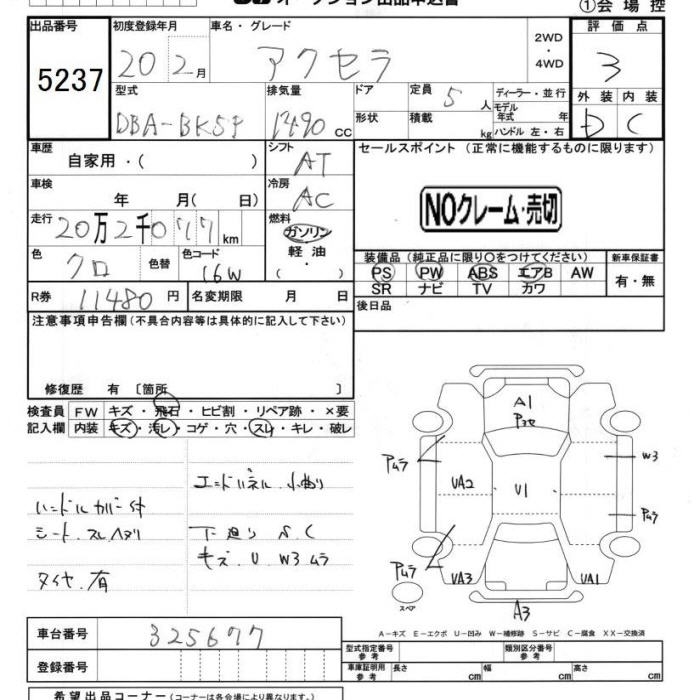 オークション出品申込書
①会場控
出品番号 初度登録年月 車名・グレード 2WD ・ 4WD 評価点
5237 20年2月 アクセラ 3
型式 排気量 ドア 定員 5人 ディーラー・並行 外装 内装
DBA-BK5P 1490cc 形状 積載 kg モデル年式 年 ハンドル 左・右 D C
車歴 自家用・( ) シフト AT セールスポイント (正常に機能するものに限ります)
車検 年 月( 日) 冷房 AC
NOクレーム・売切
走行 20万2千077km 燃料 ガソリン 軽油 ・( )
色 クロ 色替 色コード 16W
装備品(純正品に限り○をつけてください) 新車保証書
PS PW ABS エアB AW 有・無
SR ナビ TV カワ
R券 11480円 名変期限 月 日 後日品
注意事項申告欄(不具合内容等は具体的に記入して下さい)
修復歴 有 〔箇所 〕
検査員 FW キズ・飛石・ヒビ割・リペア跡・×要
記入欄 内装 キズ・汚レ・コゲ・穴・スレ・キレ・破レ
エンドパネル 小曲り
ハンドルカバー付
シート.スレヘタリ 下廻り S.C
キズ.U W3ムラ
タイヤ.有
A1
Pコセ
Pムラ W3
UA2 U1
Pムラ
Pムラ UA3 UA1
スペア A3
A-キズ E-エクボ U-凹み W-補修跡 S-サビ C-腐食 XX-交換済
車台番号 325677
型式指定番号 参考 類別区分番号 参考
登録番号 車庫証明用 参考 長さ cm 幅 cm 高さ cm
希望出品コーナー (コーナーは各会場により異なります。)